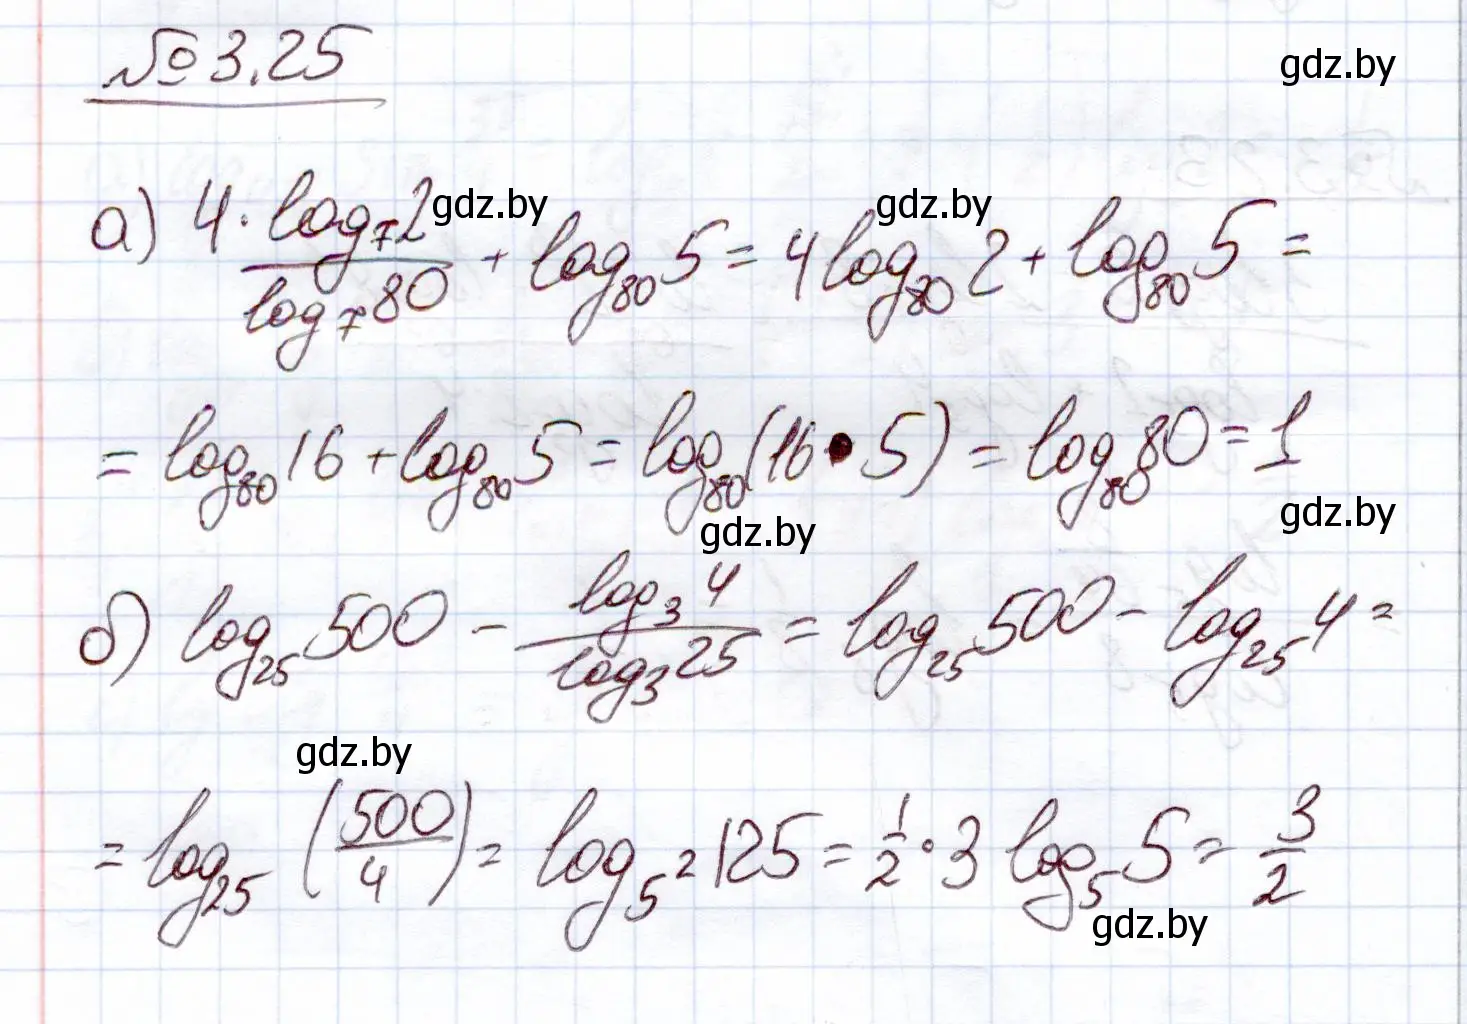 № 3.25
gdz.by
а) 4 · log₇2 / log₇80 + log₈₀5 = 4 log₈₀2 + log₈₀5 =
gdz.by gdz.by
= log₈₀16 + log₈₀5 = log₈₀(16 • 5) = log₈₀80 = 1
gdz.by gdz.by
б) log₂₅500 - log₃4 / log₃25 = log₂₅500 - log₂₅4 =
gdz.by
= log₂₅(500/4) = log₅²125 = 1/2 · 3 log₅5 = 3/2
gdz.by